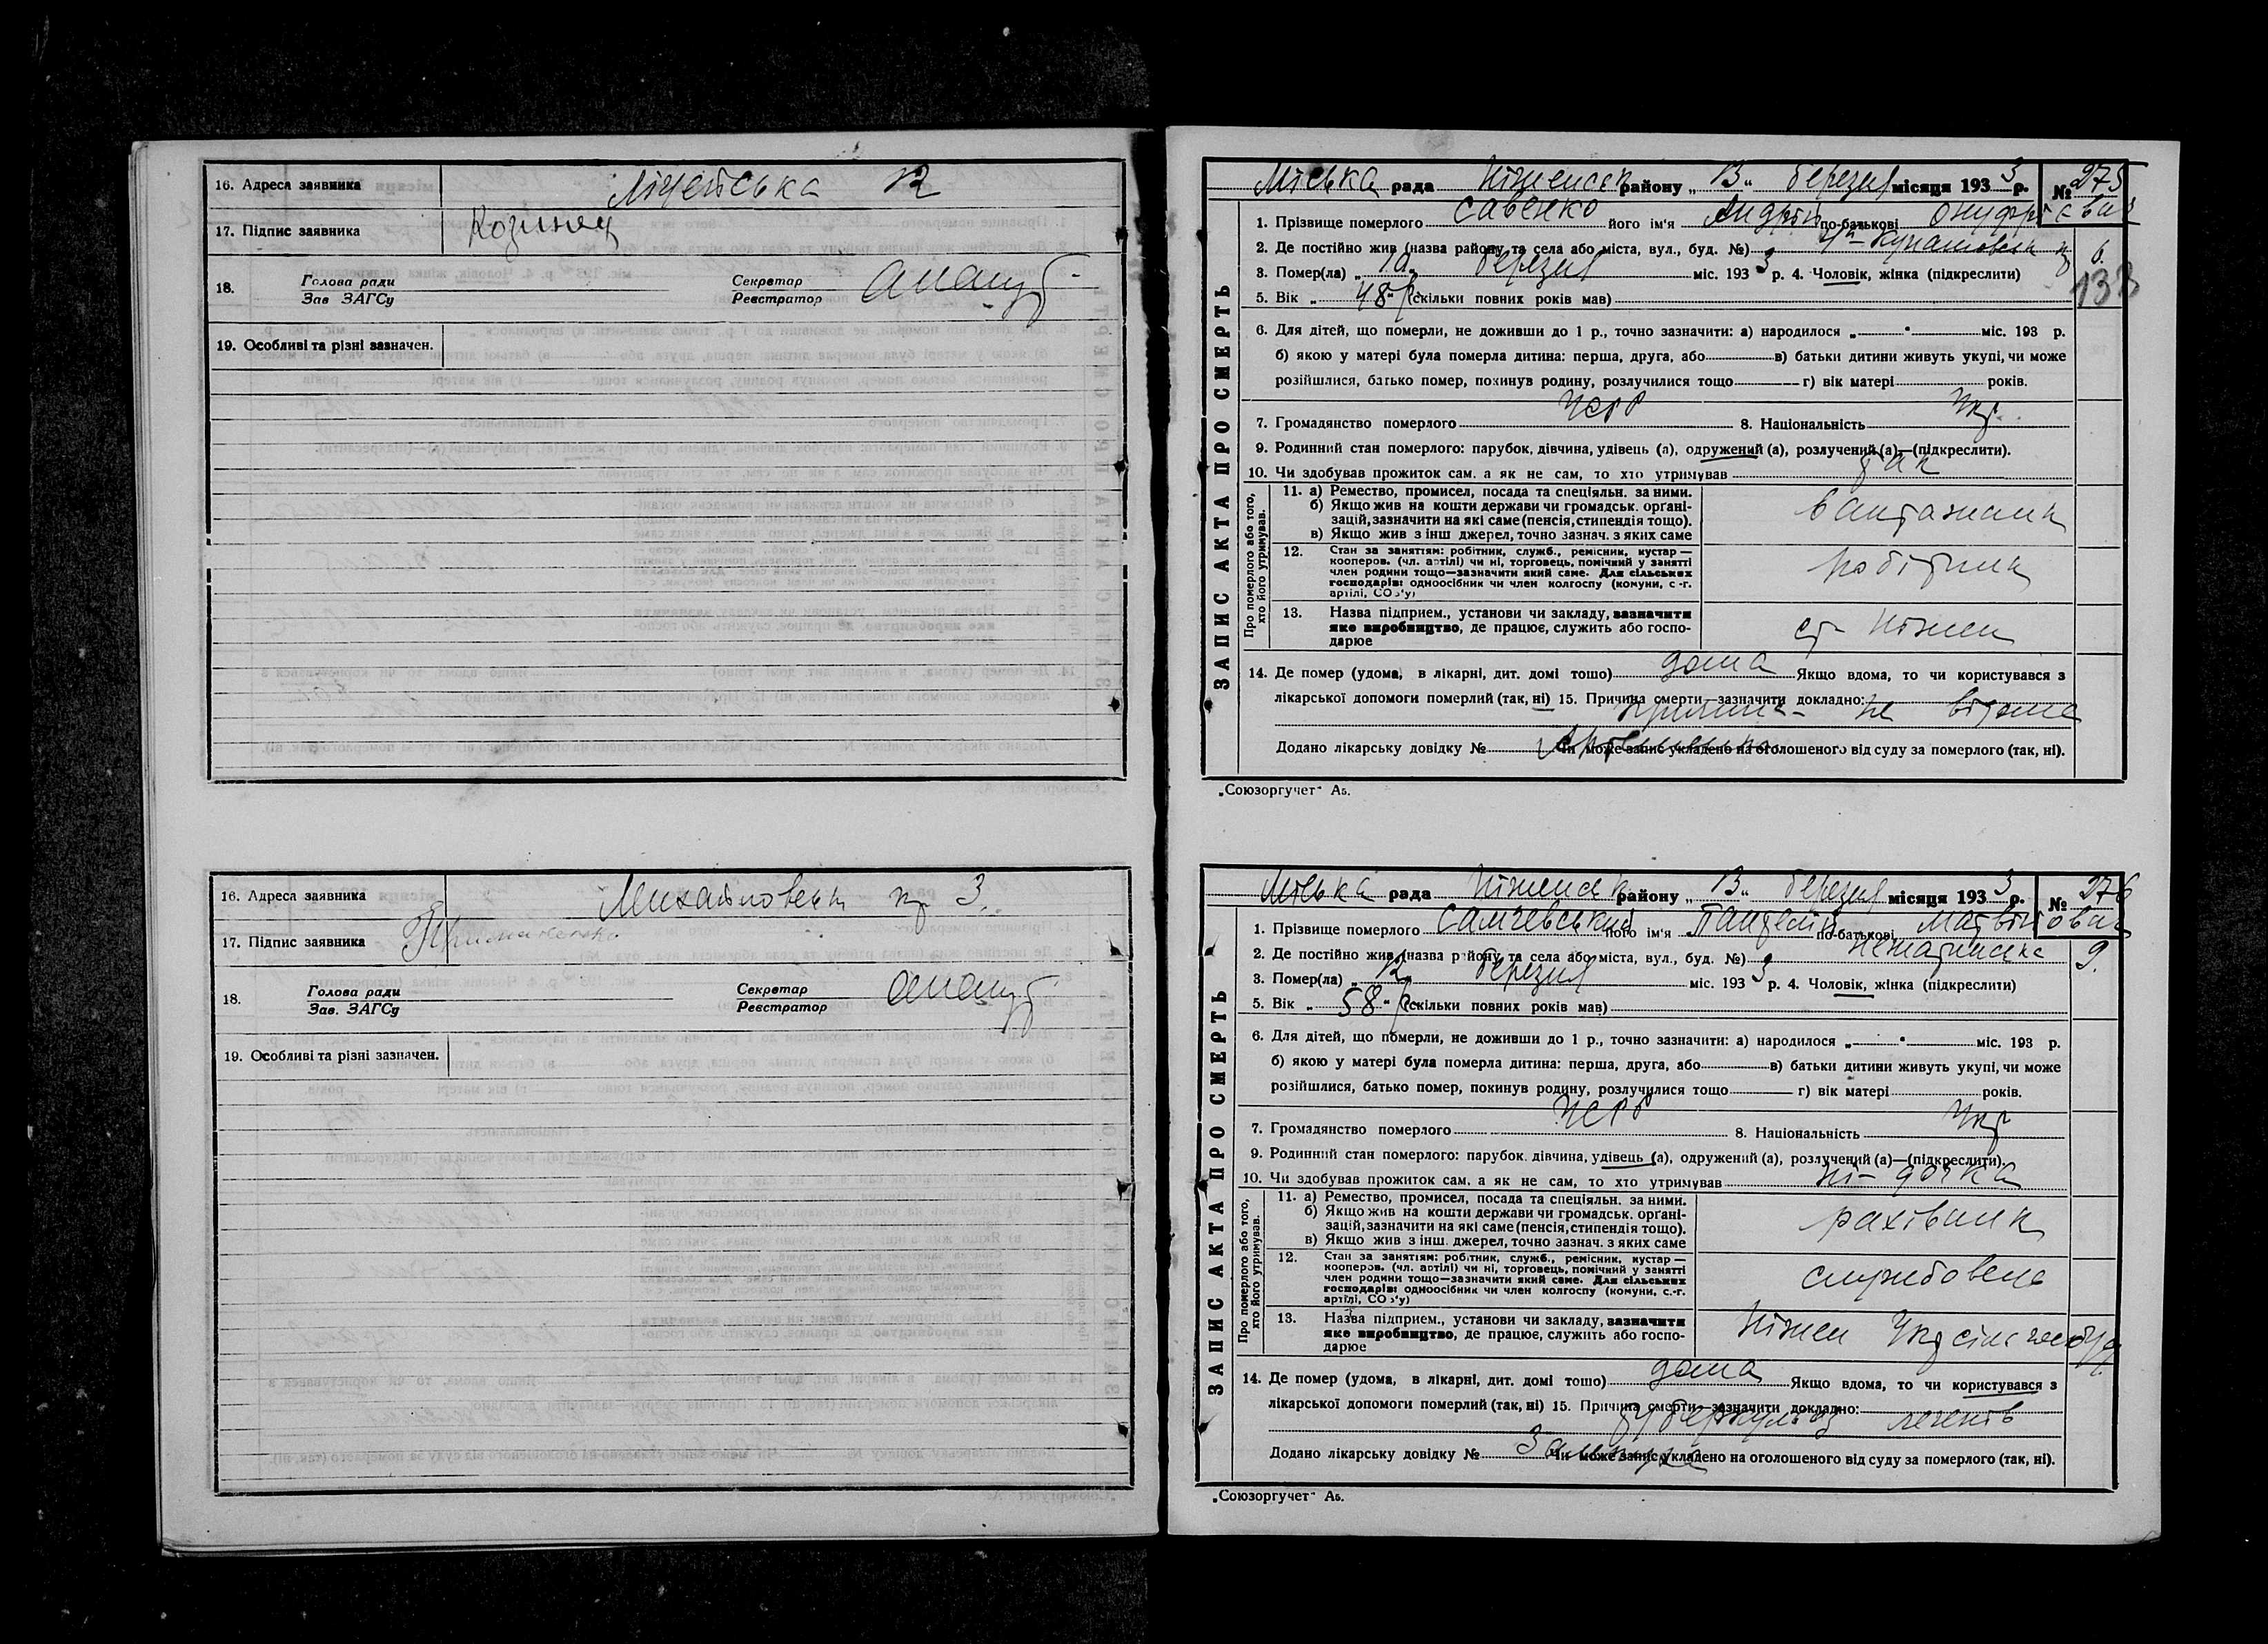 16. Адреса заявника Ліцейська 12
17. Підпис заявника Козинец
18. Голова ради Секретар
Зав ЗАГСу Реєстратор
19. Особливі та різні зазначен.
16. Адреса заявника 3
17. Підпис заявника
18. Голова ради Секретар
Зав. ЗАГСу Реєстратор
19. Особливі та різні зазначен.
ЗАПИС АКТА ПРО СМЕРТЬ
Міська рада Ніженськ району „13“ березня місяця 1933 р. № 275
1. Прізвище померлого Савенко його ім'я Андрій по-батькові Онуфрієвич
2. Де постійно жив (назва району та села або міста, вул., буд. №) 6.
3. Помер(ла) „ березня міс. 1933 р. 4. Чоловік, жінка (підкреслити) 133
5. Вік „48“ (скільки повних років мав)
6. Для дітей, що померли, не доживши до 1 р., точно зазначити: а) народилося „ “ міс. 193 р.
б) якою у матері була померла дитина: перша, друга, або в) батьки дитини живуть укупі, чи може
розійшлися, батько помер, покинув родину, розлучилися тощо г) вік матері років.
7. Громадянство померлого УСРР 8. Національність Укр.
9. Родинний стан померлого: парубок, дівчина, удівець (а), одружений (а), розлучений (а)—(підкреслити).
10. Чи здобував прожиток сам, а як не сам, то хто утримував так
Про померлого або того,
хто його утримував.
11. а) Ремество, промисел, посада та спеціяльн. за ними.
б) Якщо жив на кошти держави чи громадськ. орґані-
зацій, зазначити на які саме (пенсія, стипендія тощо).
в) Якщо жив з інш джерел, точно зазнач. з яких саме
вантажник
12. Стан за заняттям: робітник, служб., ремісник, кустар —
кооперов. (чл. артілі) чи ні, торговець, помічний у занятті
член родини тощо—зазначити який саме. Для сільських
господарів: одноосібник чи член колгоспу (комуни, с.-г.
артілі, СОЗ'у)
робітник
13. Назва підприєм., установи чи закладу, зазначити
яке виробництво, де працює, служить або госпо-
дарює
ст. Ніжен
14. Де помер (удома, в лікарні, дит. домі тощо) дома Якщо вдома, то чи користувався з
лікарської допомоги померлий (так, ні) 15. Причина смерти—зазначити докладно:
причина не відома
Додано лікарську довідку № Чи може запис укладено на оголошеного від суду за померлого (так, ні).
„Союзоргучет“ А₅.
ЗАПИС АКТА ПРО СМЕРТЬ
Міська рада Ніженськ району „13“ березня місяця 1933 р. № 276
1. Прізвище померлого Самчевський його ім'я Пантелій по-батькові Матвійович
2. Де постійно жив (назва району та села або міста, вул., буд. №) 9.
3. Помер(ла) „12 березня міс. 1933 р. 4. Чоловік, жінка (підкреслити)
5. Вік „58“ (скільки повних років мав)
6. Для дітей, що померли, не доживши до 1 р., точно зазначити: а) народилося „ “ міс. 193 р.
б) якою у матері була померла дитина: перша, друга, або в) батьки дитини живуть укупі, чи може
розійшлися, батько помер, покинув родину, розлучилися тощо г) вік матері років.
7. Громадянство померлого УСРР 8. Національність Укр
9. Родинний стан померлого: парубок, дівчина, удівець (а), одружений (а), розлучений (а)—(підкреслити).
10. Чи здобував прожиток сам, а як не сам, то хто утримував ні — дочка
Про померлого або того,
хто його утримував.
11. а) Ремество, промисел, посада та спеціяльн. за ними.
б) Якщо жив на кошти держави чи громадськ. орґані-
зацій, зазначити на які саме (пенсія, стипендія тощо).
в) Якщо жив з інш. джерел, точно зазнач. з яких саме
рахівник
12. Стан за заняттям: робітник, служб., ремісник, кустар —
кооперов. (чл. артілі) чи ні, торговець, помічний у занятті
член родини тощо—зазначити який саме. Для сільських
господарів: одноосібник чи член колгоспу (комуни, с.-г.
артілі, СОЗ'у)
службовець
13. Назва підприєм., установи чи закладу, зазначити
яке виробництво, де працює, служить або госпо-
дарює
Ніжен
14. Де помер (удома, в лікарні, дит. домі тощо) дома Якщо вдома, то чи користувався з
лікарської допомоги померлий (так, ні) 15. Причина смерти—зазначити докладно:
туберкульоз легенів
Додано лікарську довідку № Чи може запис укладено на оголошеного від суду за померлого (так, ні).
„Союзоргучет“ А₅.